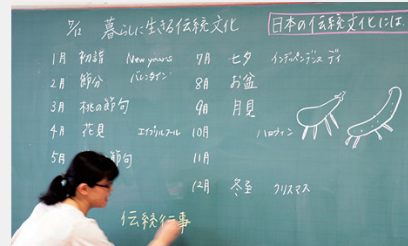 7/12 暮らしに生きる伝統文化
日本の伝統文化には
1月 初詣 New years
2月 節分 バレンタイン
3月 桃の節句
4月 花見 エイプリルフール
5月 節句
7月 七夕 インデペンデンス デイ
8月 お盆
9月 月見
10月 ハロウィン
11月
12月 冬至 クリスマス
伝統行事